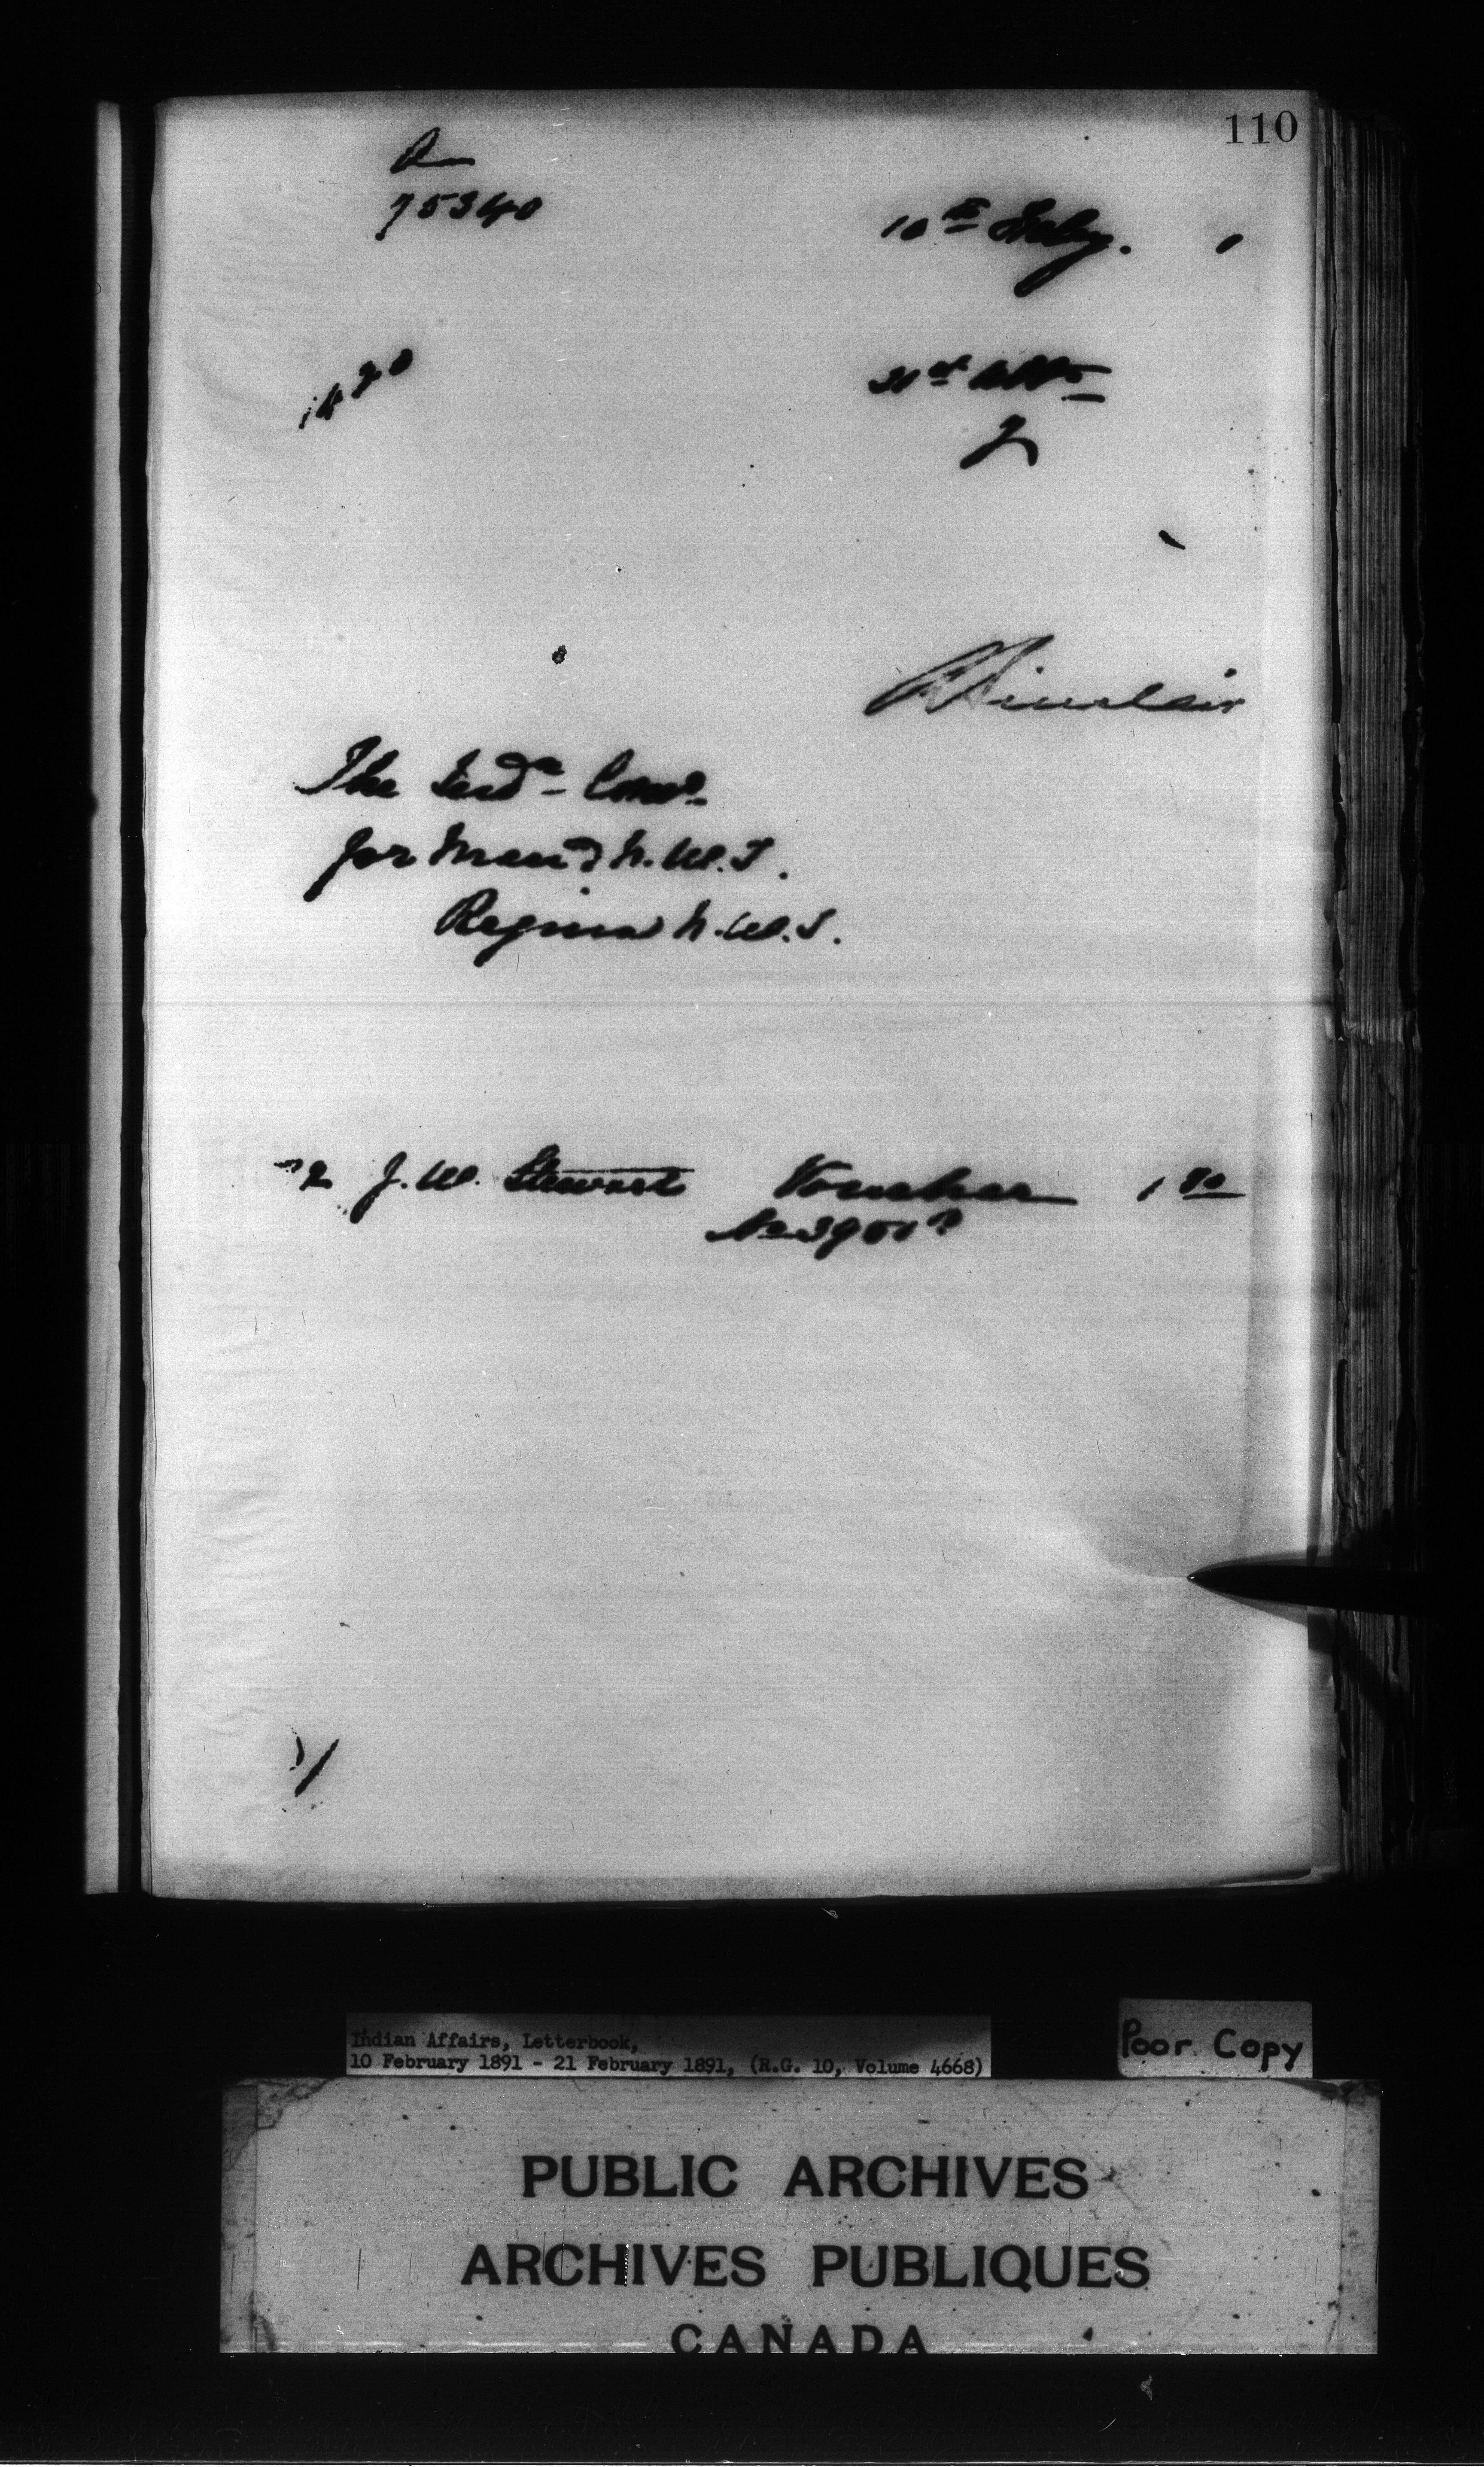 110
A
75340
10th Feby. 1
21st Ulto
R Sinclair
The Ind. Comr.
for Man & N.W.T.
Regina N.W.T.
J.W. Stewart Voucher 1 80
No 3901
Indian Affairs, Letterbook,
10 February 1891 - 21 February 1891, (R.G. 10, Volume 4668)
Poor Copy
PUBLIC ARCHIVES
ARCHIVES PUBLIQUES
CANADA